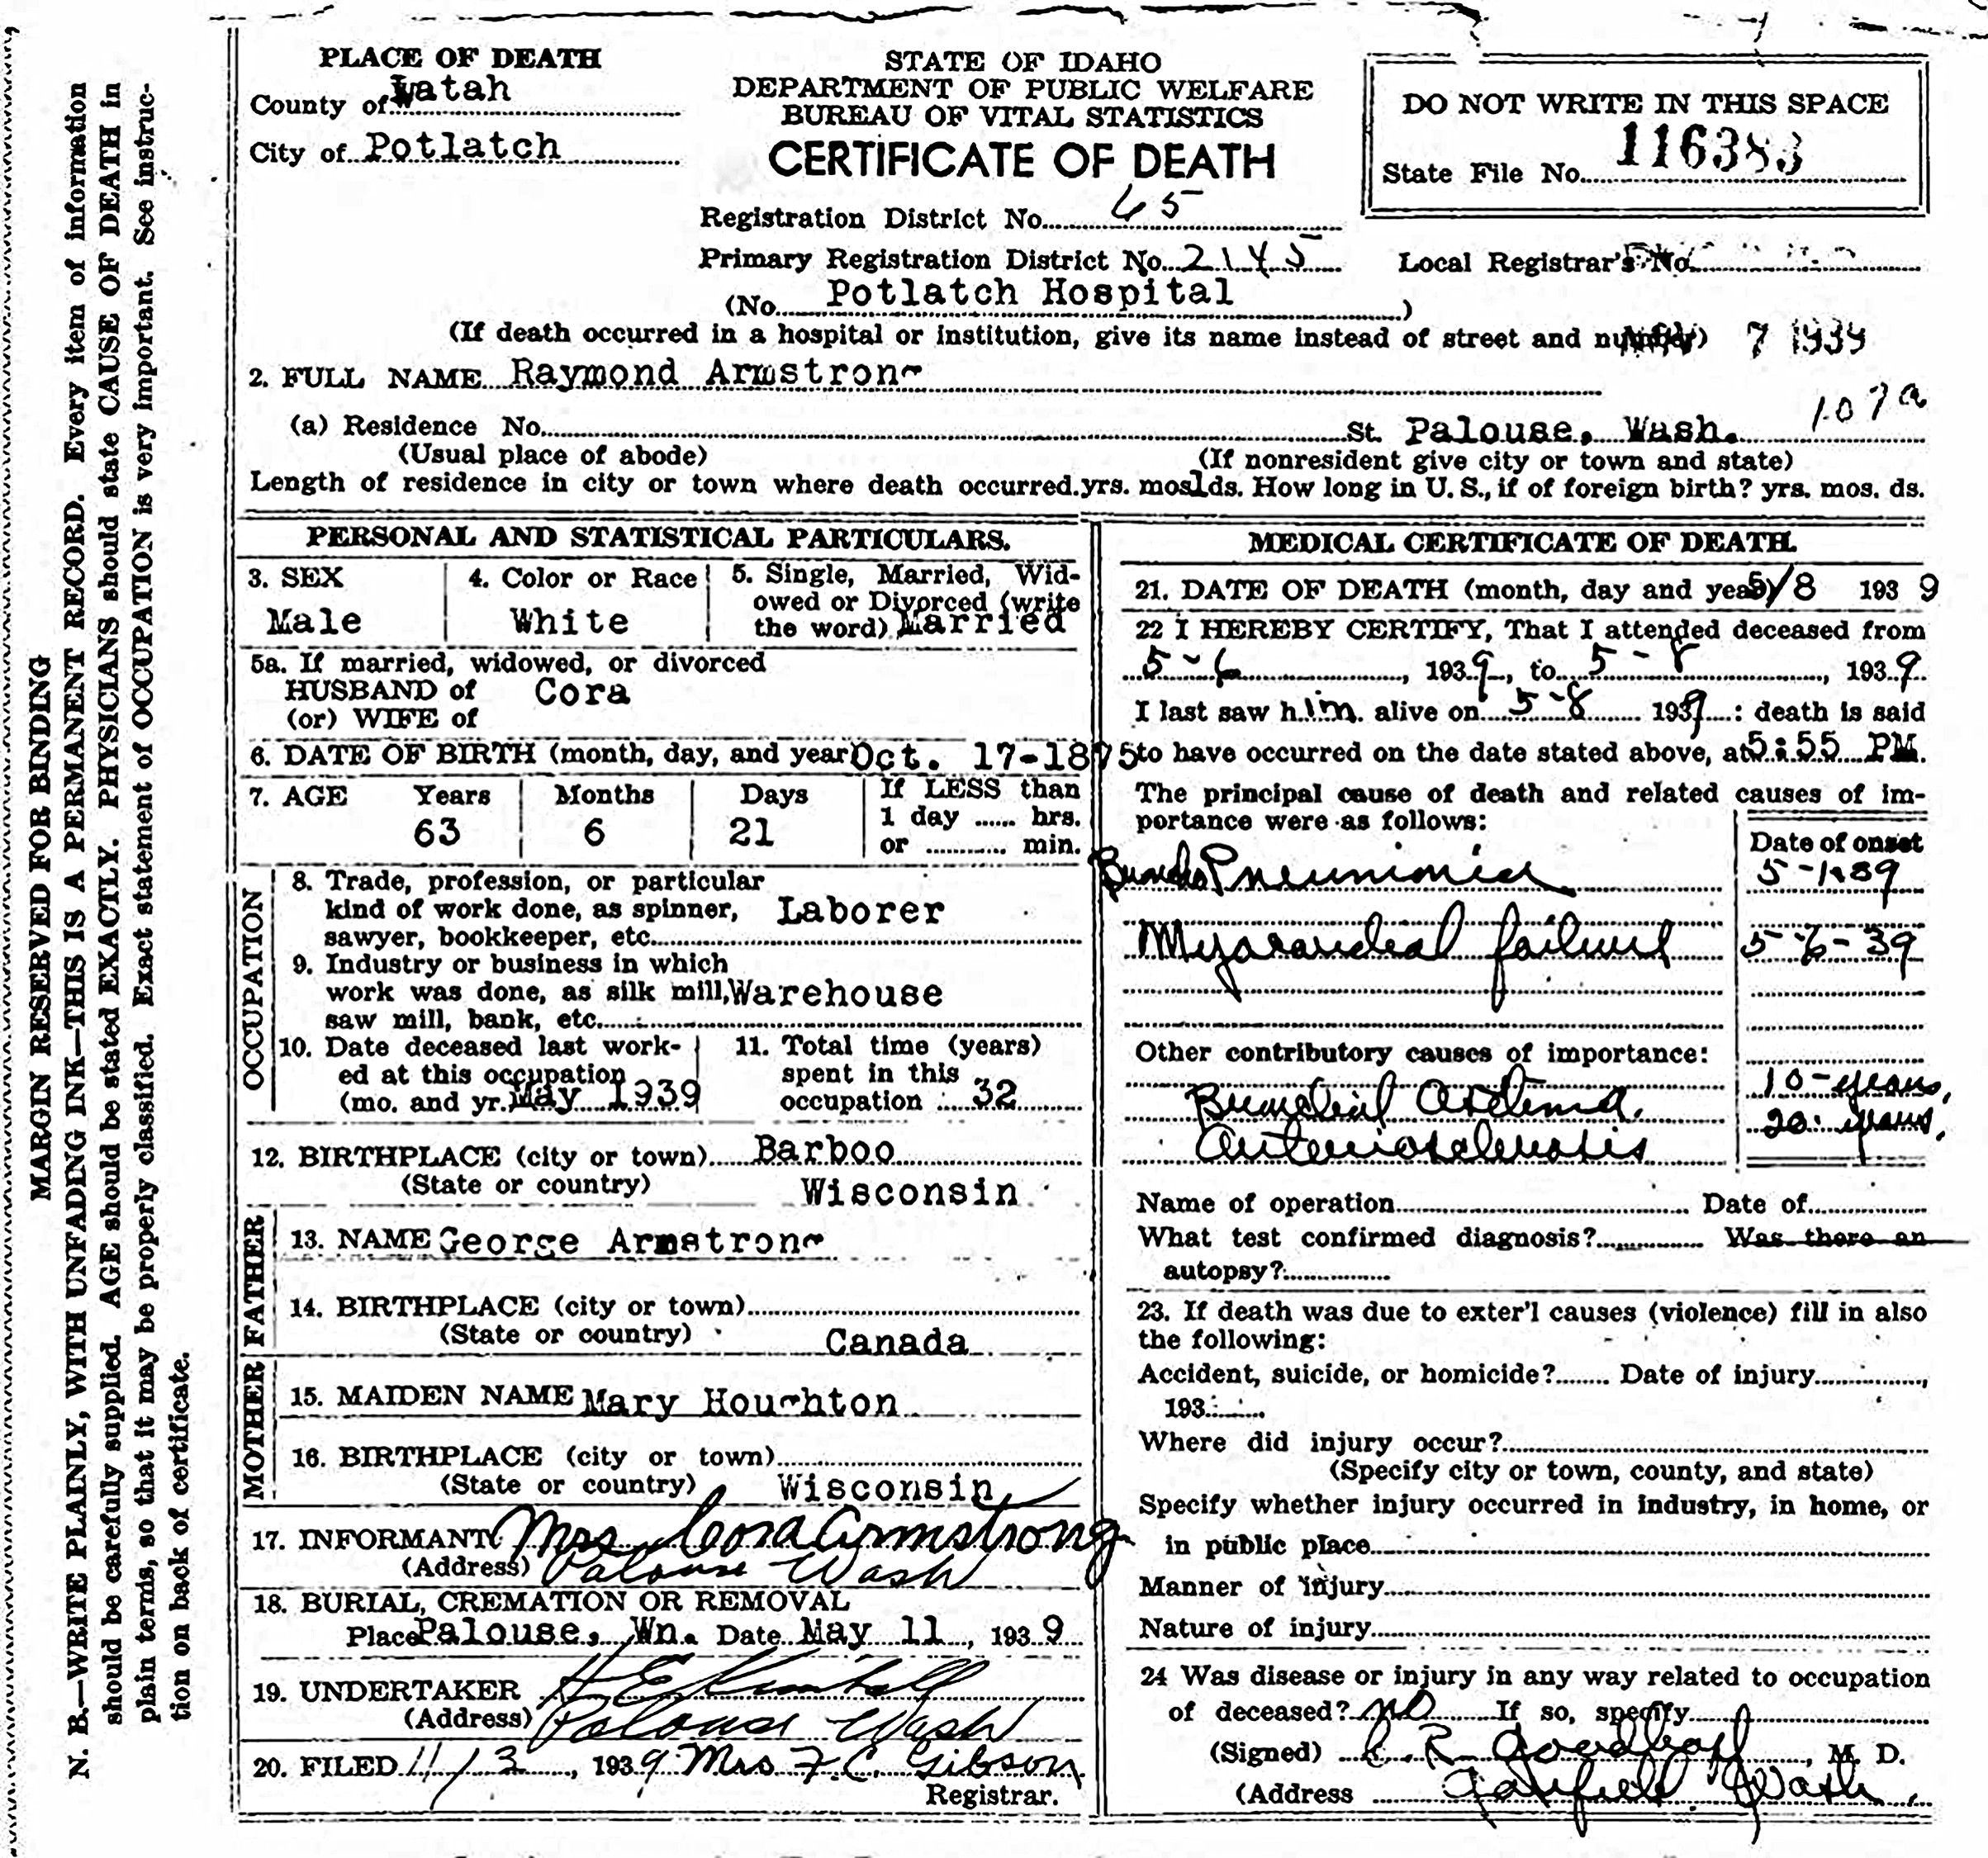 MARGIN RESERVED FOR BINDING
N. B.—WRITE PLAINLY, WITH UNFADING INK—THIS IS A PERMANENT RECORD. Every item of information
should be carefully supplied. AGE should be stated EXACTLY. PHYSICIANS should state CAUSE OF DEATH in
plain terms, so that it may be properly classified. Exact statement of OCCUPATION is very important. See instruc-
tion on back of certificate.
PLACE OF DEATH
County of Latah
City of Potlatch
STATE OF IDAHO
DEPARTMENT OF PUBLIC WELFARE
BUREAU OF VITAL STATISTICS
CERTIFICATE OF DEATH
DO NOT WRITE IN THIS SPACE
State File No. 116383
Registration District No. 65
Primary Registration District No. 2145
Local Registrar's No.
(No. Potlatch Hospital )
(If death occurred in a hospital or institution, give its name instead of street and number) 7 1939
2. FULL NAME Raymond Armstrong
107a
(a) Residence No. St. Palouse, Wash.
(Usual place of abode) (If nonresident give city or town and state)
Length of residence in city or town where death occurred. yrs. mos. 1 ds. How long in U. S., if of foreign birth? yrs. mos. ds.
PERSONAL AND STATISTICAL PARTICULARS.
3. SEX
Male
4. Color or Race
White
5. Single, Married, Wid-
owed or Divorced (write
the word) Married
5a. If married, widowed, or divorced
HUSBAND of Cora
(or) WIFE of
6. DATE OF BIRTH (month, day, and year Oct. 17-1875
7. AGE Years Months Days
63 6 21
If LESS than
1 day ...... hrs.
or ........... min.
OCCUPATION
8. Trade, profession, or particular
kind of work done, as spinner, Laborer
sawyer, bookkeeper, etc.
9. Industry or business in which
work was done, as silk mill, Warehouse
saw mill, bank, etc.
10. Date deceased last work-
ed at this occupation
(mo. and yr. May 1939
11. Total time (years)
spent in this
occupation 32
12. BIRTHPLACE (city or town) Barboo
(State or country) Wisconsin
FATHER
13. NAME George Armstrong
14. BIRTHPLACE (city or town)
(State or country) Canada
MOTHER
15. MAIDEN NAME Mary Houghton
16. BIRTHPLACE (city or town)
(State or country) Wisconsin
17. INFORMANT Mrs Cora Armstrong
(Address) Palouse Wash
18. BURIAL, CREMATION OR REMOVAL
Place Palouse, Wn. Date May 11, 1939
19. UNDERTAKER H E Kimball
(Address) Palouse Wash
20. FILED 11/3, 1939 Mrs F. C. Gibson
Registrar.
MEDICAL CERTIFICATE OF DEATH.
21. DATE OF DEATH (month, day and year) 5/8 1939
22 I HEREBY CERTIFY, That I attended deceased from
5-6, 1939, to 5-8, 1939
I last saw him alive on 5-8 1939: death is said
to have occurred on the date stated above, at 5:55 PM.
The principal cause of death and related causes of im-
portance were as follows:
Date of onset
Broncho Pneumonia 5-1-39
Myocardial failure 5-6-39
Other contributory causes of importance:
Bronchial Asthma. 10-years,
Arteriosclerosis 20 years,
Name of operation Date of
What test confirmed diagnosis? Was there an
autopsy?
23. If death was due to exter'l causes (violence) fill in also
the following:
Accident, suicide, or homicide? Date of injury,
193
Where did injury occur?
(Specify city or town, county, and state)
Specify whether injury occurred in industry, in home, or
in public place
Manner of injury
Nature of injury
24 Was disease or injury in any way related to occupation
of deceased? no If so, specify
(Signed) R. , M. D.
(Address Garfield Wash.